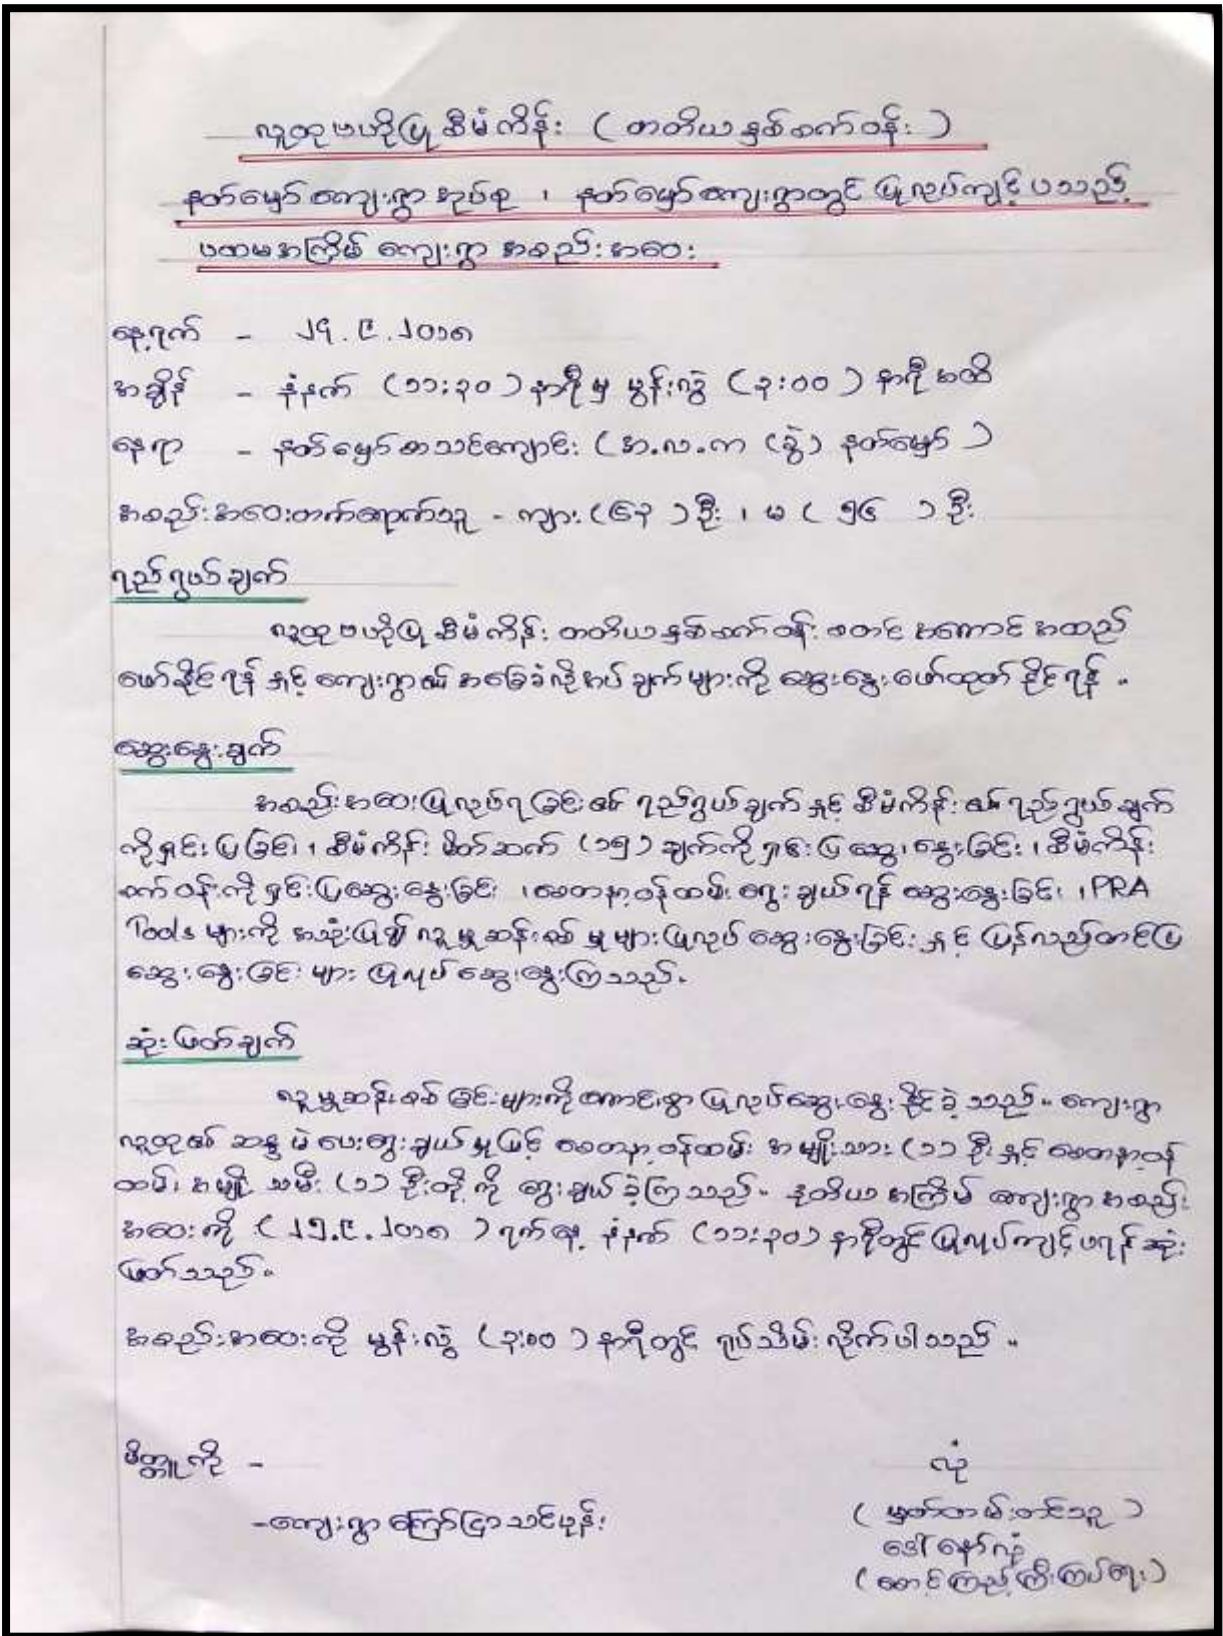 လူထုဗဟိုပြုစီမံကိန်း ( တတိယနှစ်စက်ဝန်း )
နတ်မျှော်ကျေးရွာအုပ်စု ၊ နတ်မျှော်ကျေးရွာတွင် ပြုလုပ်ကျင့်ပသည့်
ပထမအကြိမ် ကျေးရွာ အစည်းအဝေး
နေ့ရက် - ၂၄.၉.၂၀၁၈
အချိန် - နံနက် (၁၁:၃၀) နာရီမှ မွန်းလွဲ (၃:၀၀) နာရီအထိ
နေရာ - နတ်မျှော်စာသင်ကျောင်း (အ.လ.က (ခွဲ) နတ်မျှော်)
အစည်းအဝေးတက်ရောက်သူ - ကျား (၆၃) ဦး ၊ မ ( ၅၆ ) ဦး
ရည်ရွယ်ချက်
လူထုဗဟိုပြုစီမံကိန်း တတိယနှစ်စက်ဝန်း စတင် အကောင်အထည်
ဖော်နိုင်ရန် နှင့် ကျေးရွာ၏ အခြေခံလိုအပ်ချက်များကို ဆွေးနွေးဖော်ထုတ်နိုင်ရန် ။
ဆွေးနွေးချက်
အစည်းအဝေးပြုလုပ်ရခြင်း၏ ရည်ရွယ်ချက်နှင့် စီမံကိန်း၏ ရည်ရွယ်ချက်
ကိုရှင်းပြခြင်း ၊ စီမံကိန်း မိတ်ဆက် (၁၅) ချက်ကို ရှင်းပြဆွေးနွေးခြင်း ၊ စီမံကိန်း
စက်ဝန်းကို ရှင်းပြဆွေးနွေးခြင်း ၊ စေတနာ့ဝန်ထမ်းရွေးချယ်ရန် ဆွေးနွေးခြင်း ၊ PRA
Tools များကို အသုံးပြု၍ လူမှုဆန်းစစ်မှုများပြုလုပ် ဆွေးနွေးခြင်း နှင့် ပြန်လည်တင်ပြ
ဆွေးနွေးခြင်းများ ပြုလုပ် ဆွေးနွေးကြသည်။
ဆုံးဖြတ်ချက်
လူမှုဆန်းစစ်ခြင်းများကို ကောင်းစွာ ပြုလုပ်ဆွေးနွေးနိုင်ခဲ့သည်။ ကျေးရွာ
လူထု၏ ဆန္ဒမဲပေးရွေးချယ်မှုဖြင့် စေတနာ့ဝန်ထမ်း အမျိုးသား (၁) ဦးနှင့် စေတနာ့ဝန်
ထမ်း အမျိုးသမီး (၁) ဦးတို့ကို ရွေးချယ်ခဲ့ကြသည်။ ဒုတိယအကြိမ် ကျေးရွာအစည်း
အဝေးကို ( ၂၅.၉.၂၀၁၈ ) ရက်နေ့ နံနက် (၁၁:၃၀) နာရီတွင် ပြုလုပ်ကျင့်ပရန် ဆုံး
ဖြတ်သည်။
အစည်းအဝေးကို မွန်းလွဲ (၃:၀၀) နာရီတွင် ရုပ်သိမ်းလိုက်ပါသည် ။
မိတ္တူကို -
- ကျေးရွာကြော်ငြာသင်ပုန်း
လုံ
( မှတ်တမ်းတင်သူ )
ဒေါ်နော်လုံ
(စောင့်ကြည့်ကြီးကြပ်ရေး)